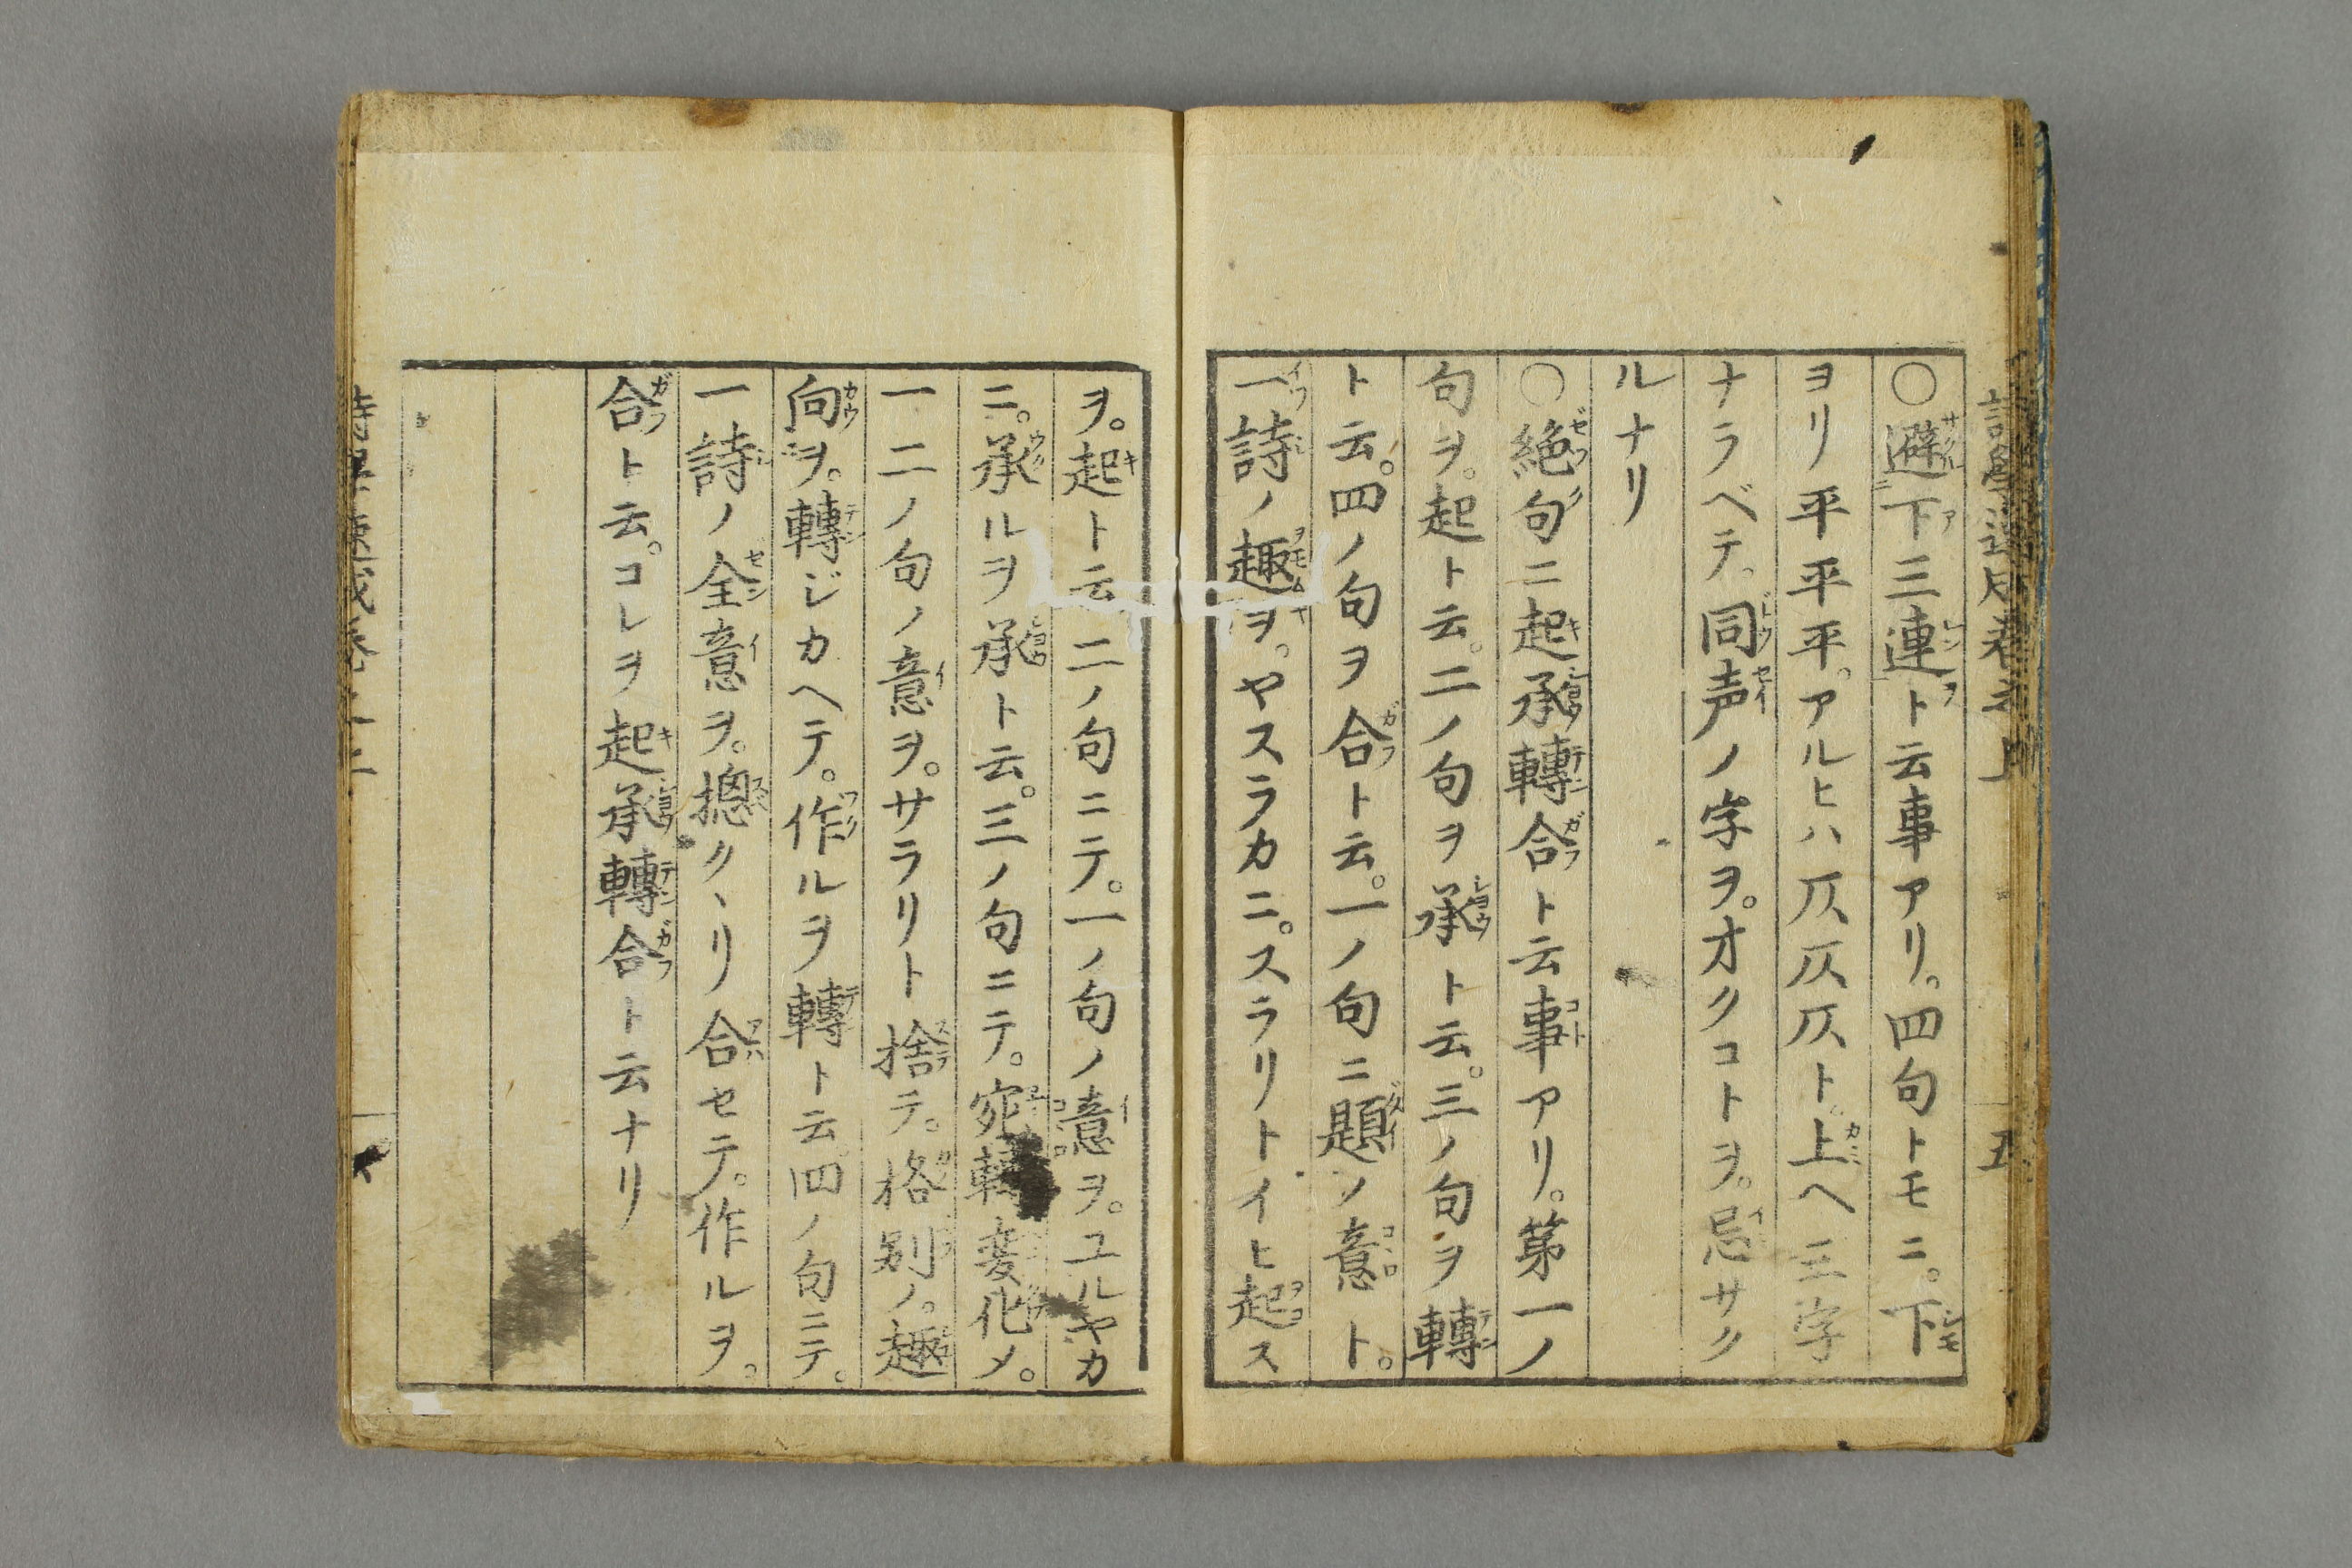 ○避下三連ト云事アリ。四句トモニ。下
ヨリ平平平。アルヒハ仄仄仄ト。上ヘ三字
ナラベテ。同声ノ字ヲ。オクコトヲ。忌サク
ルナリ
○絶句ニ起承轉合ト云事アリ。第一ノ
句ヲ。起ト云。二ノ句ヲ承ト云。三ノ句ヲ轉
ト云。四ノ句ヲ合ト云。一ノ句ニ題ノ意ト。
一詩ノ趣ヲ。ヤスラカニ。スラリトイヒ起ス
五
ヲ。起ト云。二ノ句ニテ。一ノ句ノ意ヲ。ユルヤカ
ニ。承ルヲ承ト云。三ノ句ニテ。宛轉変化メ。
一二ノ句ノ意ヲ。サラリト捨テ。格別ノ。趣
向ヲ。轉ジカヘテ。作ルヲ轉ト云。四ノ句ニテ。
一詩ノ全意ヲ。摠クヽリ合セテ。作ルヲ。
合ト云。コレヲ起承轉合ト云ナリ